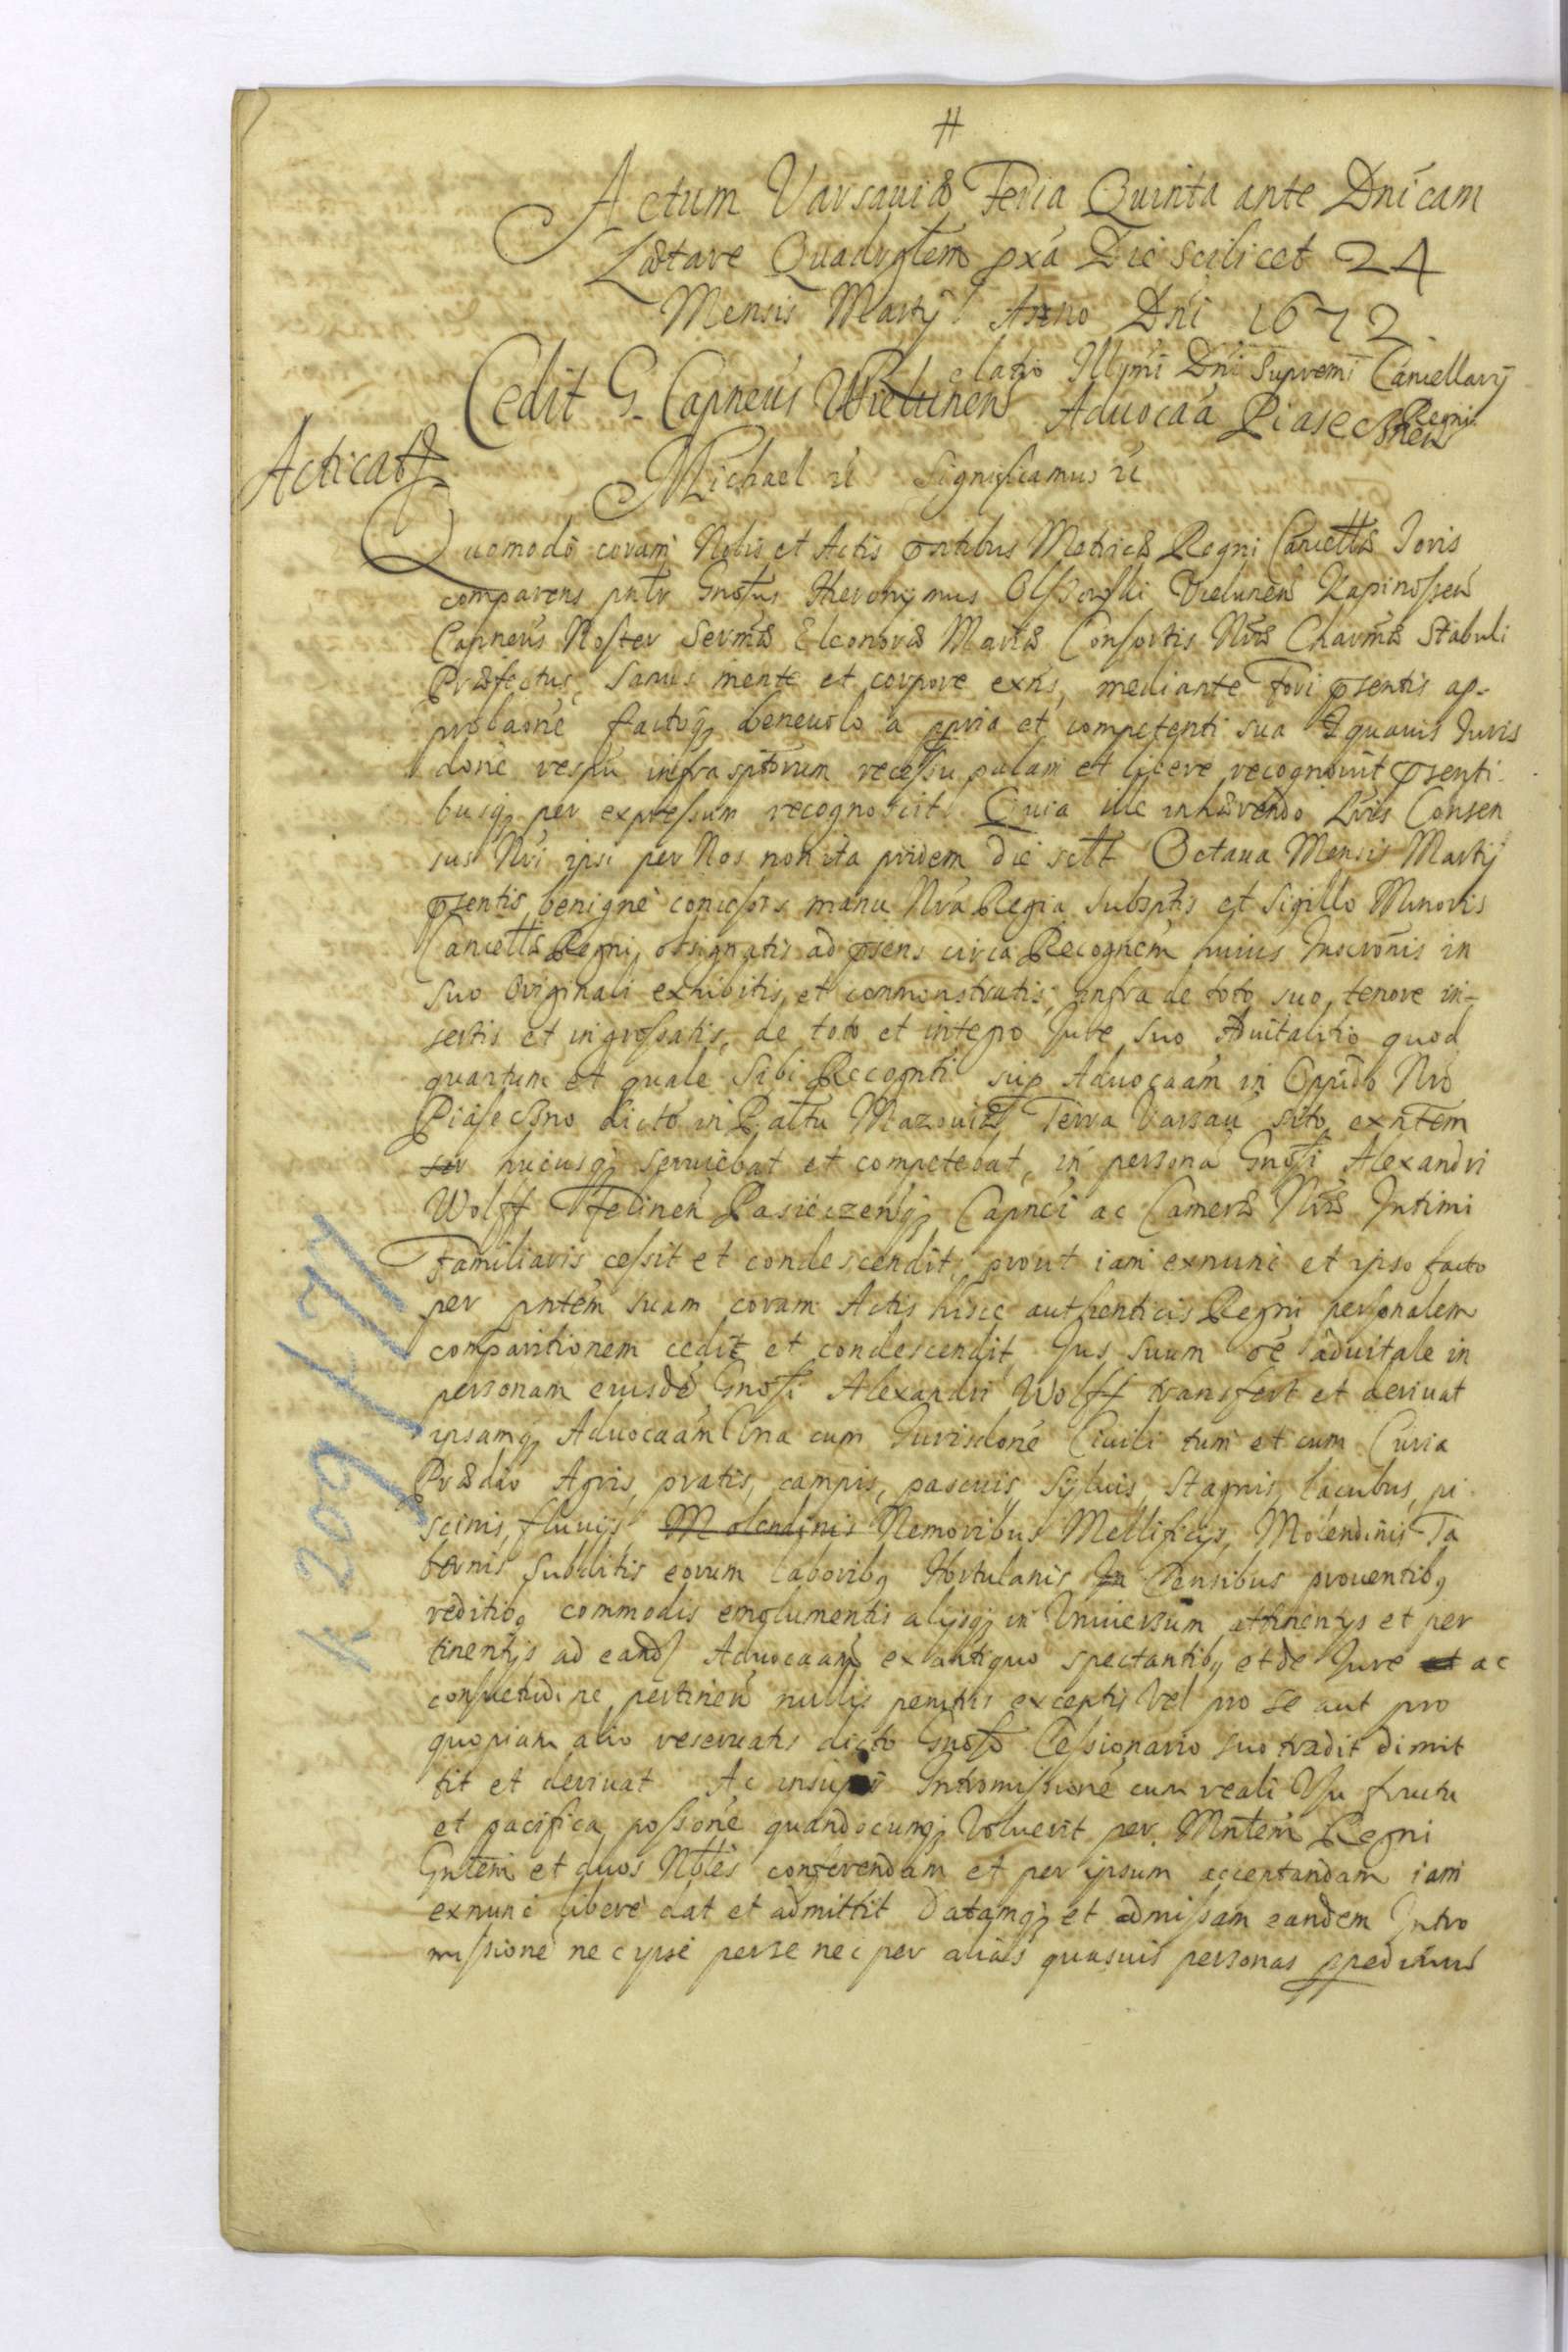 #
Actum Varsaviæ Feria Quinta ante Dnicam
Lætare Quadrgłem pxa Die scilicet 24
Mensis Martÿ Anno Dni 1672
Relatio Illmi Dni Supremi Cancellarÿ
Regni
Cedit G. Capneus Wielunen Advocaã Piasecznen
Acticat
Michael &c Significamus &c
Quomodo coram Nobis et Actis pntibus Metricæ Regni Cancelłæ Ioris
comparens pntr Gnosus Hieronymus Olszowski Vielunen Rapinossen
Capneus Noster Sermæ Eleonoræ Mariæ Consortis Nræ Charmæ Stabuli
Præfectus, sanus mente et corpore exns, mediante Fori psentis ap-
probaone factoq; benevolo a ppria et competenti sua & quavis Iuris
done respu infrasptorum recessu palam et libere recognovit psenti-
busq; per expressum recognoscit. Quia ille inhærendo Lris Consen
sus Nri ipsi per Nos non ita pridem die scilt Octava Mensis Martÿ
psentis benigne concessis manu Nra Regia Subsptis et Sigillo Minoris
Cancelłæ Regni obsignatis ad psens circa Recognem huius Inscronis in
suo Originali exhibitis et commonstratis, infra de toto suo tenore in-
sertis et ingrossatis, de toto et integro Iure suo Advitalitio quod
quantum et quale sibi Recognti sup Advocaam in Oppido Nro
Piaseczno dicto in Pałtu Mazoviæ Terra Varsav sito exntem
hucusq; serviebat et competebat, in personã Gnosi Alexandri
Wolff Felinen Pasieczenq; Capnei ac Cameræ Nræ Intimi
Familiaris cessit et condescendit, prout iam exnunc et ipso facto
per pntem suam coram Actis hisce authenticis Regni personalem
comparitionem cedit et condescendit Ius suum oe advitale in
personam eiusdẽ Gnosi Alexandri Wolff transfert et derivat
ipsamq; Advocaam Una cum Iurisdone Civili tum et cum Curia
Prædio Agris, pratis, campis, pascuis, Sylvis, Stagnis, lacubus, pi
scinis, fluvijs Molendinis Nemoribus Mellificijs, Molendinis Ta
bernis Subditis eorum laboribq Hortulanis In Censibus proventibq
reditibq commodis emolumentis alijsq; in Universum attinentijs et per
tinentijs ad eand Advocaam ex antiquo spectantibq et de Iure et ac
consuetudine pertinen nullis penitus exceptis Vel pro se aut pro
quopiam alio reservatis dicto Gnoso Cessionario suo tradit dimit
tit et derivat Ac insuper Intromissionẽ cum reali Usu fructu
et pacifica possone quandocunq; Voluerit per Mntem Regni
Gntem et duos Nbłes conferendam et per ipsum acceptandam iam
exnunc libere dat et admittit Datamq; et admissam eandem Intro
missionẽ nec ipse per se nec per alias quasvis personas
k 209 L IT